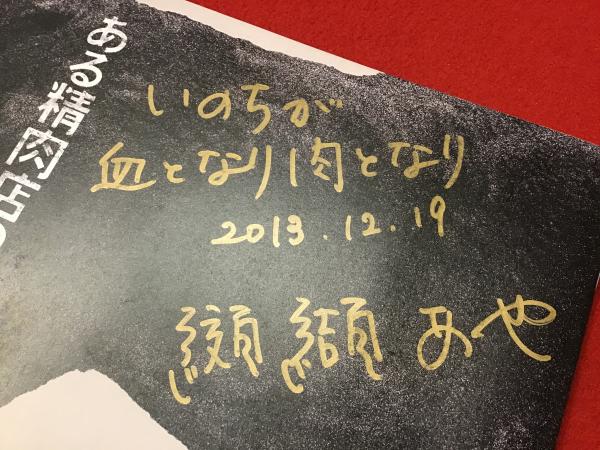 ある精肉店
いのちが
血となり肉となり
2013.12.19
纐纈あや